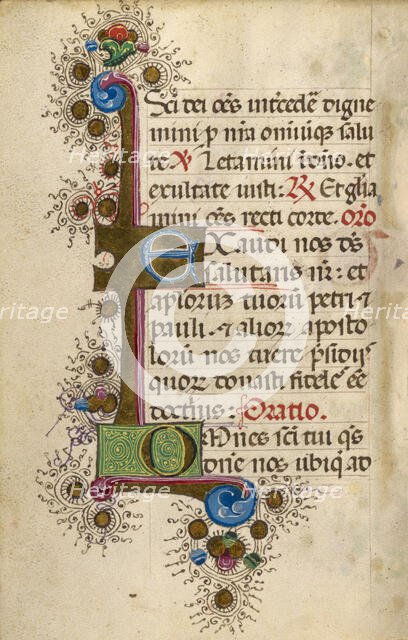 Sci dei oēs intercedē digne
mini p nr̄a omiūqꝫ salu
te ℣ Letamini i dno. et
exultate iusti: ℟ Et gl̄ia
mini oēs recti corde. oro
EXaudi nos ds̄
salutaris nr̄: et
apl̄orum tuorū petri ⁊
pauli. ⁊ alior apostο
lorū nos tuere p̄sidijs
quorꝝ donasti fideles eē
doctrius: Oratio.
OMnes sci tui qs̄
dn̄e nos ubiqꝫ ad
Heritage
Images